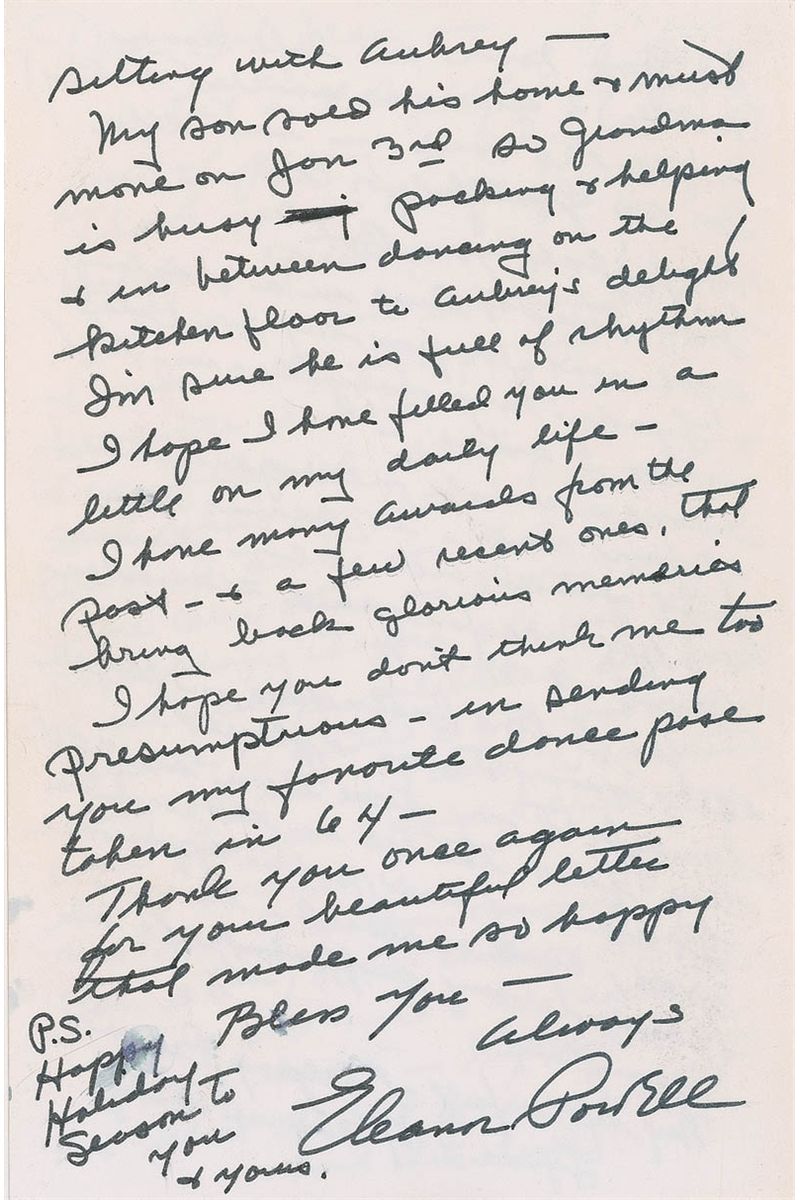 sitting with Aubrey —
My son sold his home & must
move on Jan 3rd so Grandma
is busy packing & helping
& in between dancing on the
kitchen floor to Aubrey's delight!
I'm sure he is full of rhythm
I hope I have filled you in a
little on my daily life –
I have many awards from the
past – & a few recent ones, that
bring back glorious memories
I hope you don't think me too
presumptuous – in sending
you my favorite dance pose
taken in 64 –
Thank you once again
for your beautiful letter
that made me so happy
Bless You —
Always
Eleanor Powell
P.S.
Happy
Holiday
Season to
you
& yours.